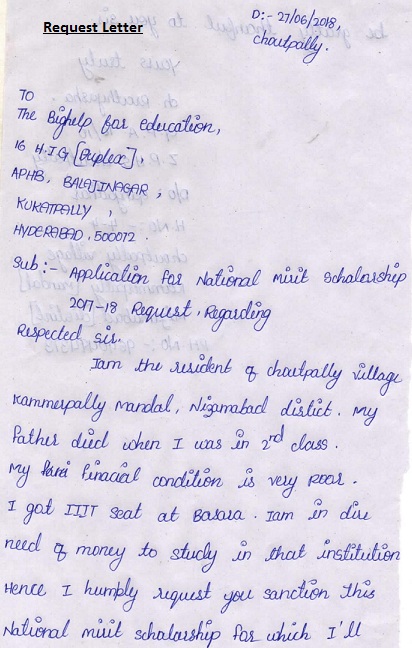 Request Letter
D:- 27/06/2018,
choutpally.
TO
The Bighelp for education,
16 H.I.G [Duplex],
APHB, BALAJINAGAR,
KUKATPALLY,
HYDERABAD, 500072.
Sub:- Application for National mirit scholarship
2017-18 Request, Regarding
Respected sir.
Iam the resident of choutpally village
Kammerpally mandal, Nizamabad distict. My
father died when I was in 2nd class.
My finacial condition is very poor.
I got IIIT seat at Basara. Iam in dire
need of money to study in that institution
Hence I humply request you sanction this
National mirit scholarship for which I'll